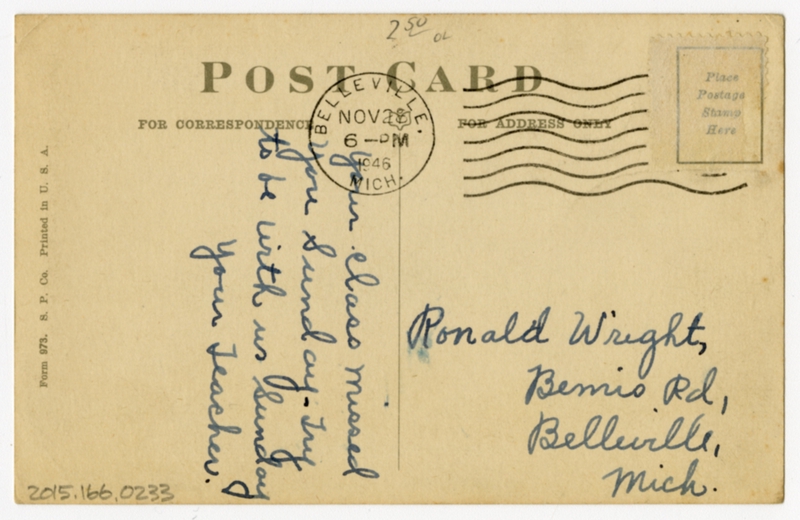 2 50
POST CARD
FOR CORRESPONDENCE
FOR ADDRESS ONLY
BELLEVILLE.
NOV 28
6 - PM
1946
MICH.
Place
Postage
Stamp
Here
Your class missed
you Sunday. Try
to be with us Sunday
Your Teacher.
Ronald Wright,
Bemis Rd,
Belleville,
Mich.
Form 973. S. P. Co. Printed in U. S. A.
2015.166.0233